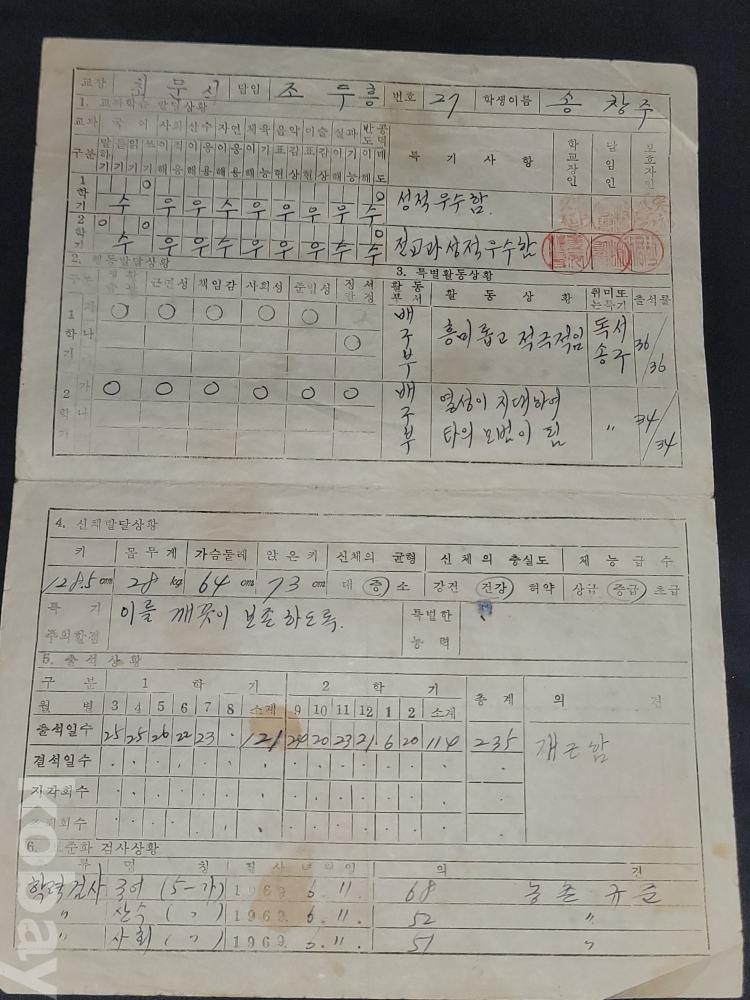 교장 최문선 담임 조두흠 번호 27 학생이름 송창주
1. 교과학습 발달상황
교과 국어 사회 산수 자연 체육 음악 미술 실과 반공도덕 특기사항 학교장인 담임인 보호자인
구분 말하기 듣기 읽기 쓰기 이해 적응 이해 응용 이해 응용 이해 기능 표현 감상 표현 감상 이해 기능 이해 태도
1학기 수 우 우 우 우 우 우 우 수 성적 우수함.
2학기 수 우 우 수 우 우 우 수 수 전교과 성적 우수함
2. 행동발달상황
3. 특별활동상황
구분 근면성 책임감 사회성 준법성 정서안정 활동부서 활동상황 취미또는특기 출석률
1학기 가 ○ ○ ○ ○ ○ 배구부 흥미롭고 적극적임 독서 송구 36/36
나 ○
2학기 가 ○ ○ ○ ○ ○ ○ 배구부 열성이 지대하여 〃 34/34
나 타의 모범이 됨
4. 신체발달상황
키 몸무게 가슴둘레 앉은키 신체의 균형 신체의 충실도 재능급수
128.5 cm 28 kg 64 cm 73 cm 대 중 소 강건 건강 허약 상급 중급 초급
특기 주의할점 이를 깨끗이 보존 하도록. 특별한 능력
5. 출석상황
구분 1학기 2학기 총계 의견
월별 3 4 5 6 7 8 소계 9 10 11 12 1 2 소계
출석일수 25 25 26 22 23 . 121 24 20 23 21 6 20 114 235 개근함
결석일수 . . . . . . . . . . . . . . .
지각회수 . . . . . . . . . . . . . . .
조퇴회수 . . . . . . . . . . . . . . .
6. 표준화 검사상황
종류 명칭 검사년월일 의견
학력검사 국어 (5-가) 1969. 6. 11. 68 농촌 규준
〃 산수 ( 〃 ) 1969. 6. 11. 52 〃
〃 사회 ( 〃 ) 1969. 6. 11. 51 〃
kobay